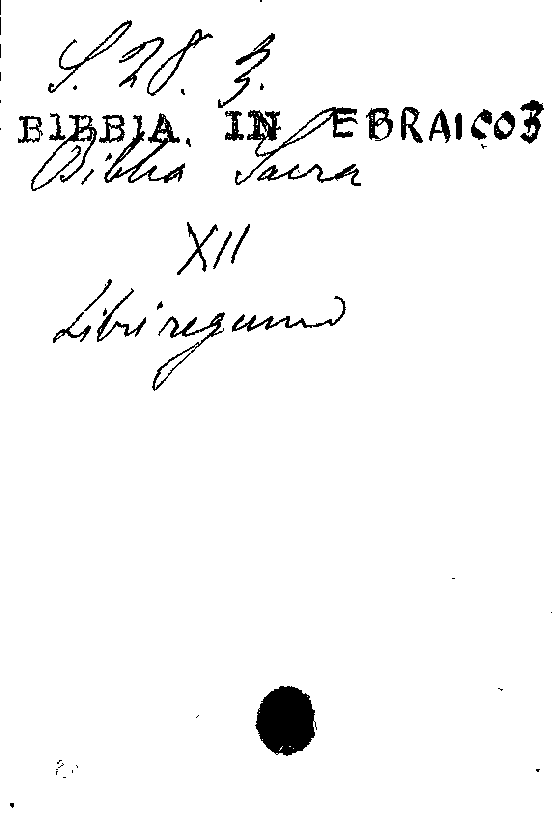 S. 28. 3.
BIBBIA. IN EBRAICO3
Biblia Sacra
XII
Libri regum